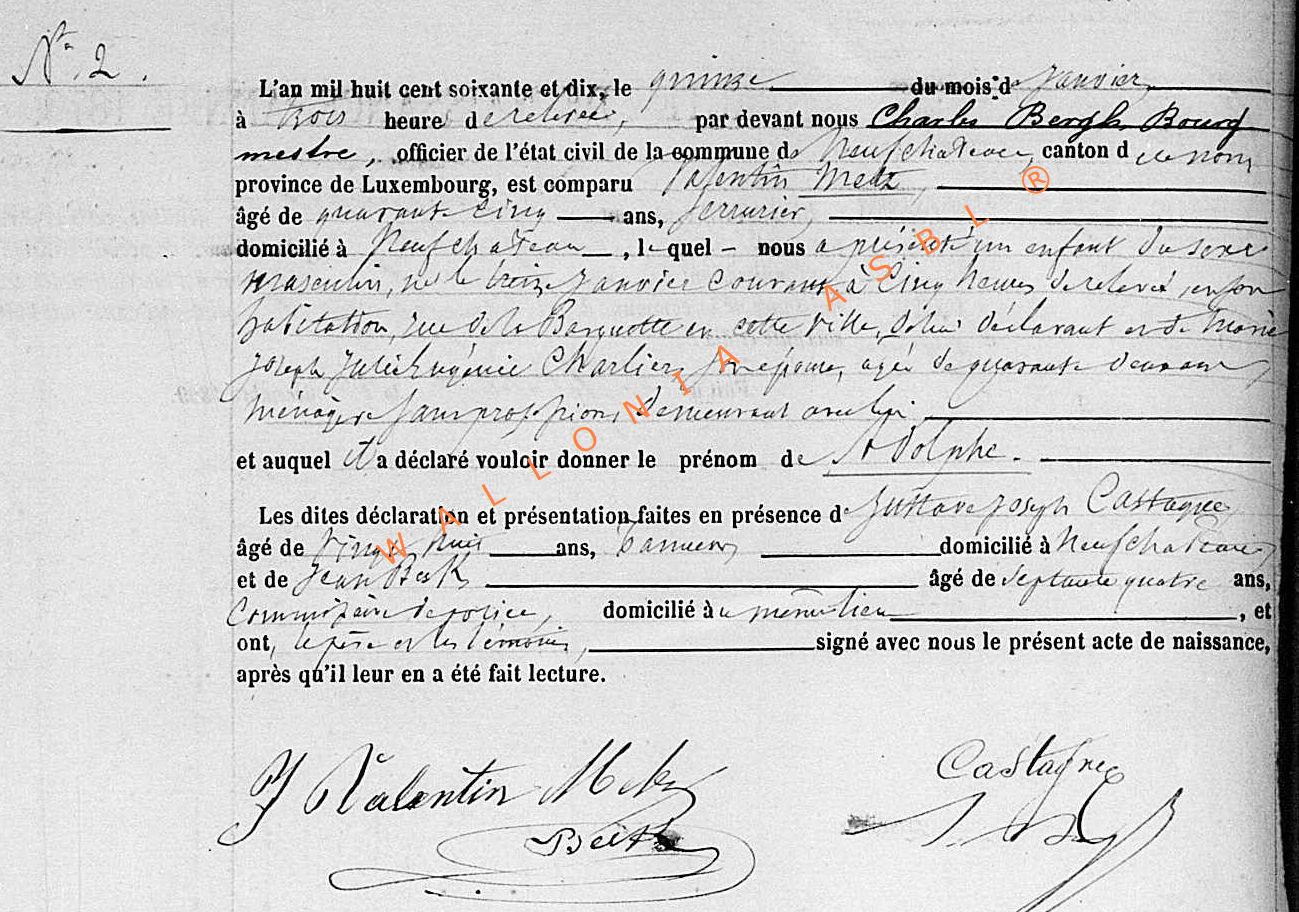 N° 2.
L'an mil huit cent soixante et dix, le quinze du mois de Janvier,
à trois heure de relevée, par devant nous Charles Bergh, Bourg
mestre, officier de l'état civil de la commune de Neufchateau, canton de ce nom
province de Luxembourg, est comparu Valentin Metz,
âgé de quarante cinq ans, serrurier,
domicilié à Neufchateau, lequel nous a présenté un enfant du sexe
masculin, né le treize Janvier courant à cinq heures de relevée, en son
habitation, rue de la Barquette en cette ville, de lui déclarant et de Marie
Joseph Julie Eugénie Charlier, son épouse, agée de quarante deux ans,
ménagère sans profession, demeurant avec lui
et auquel il a déclaré vouloir donner le prénom de Adolphe.
Les dites déclaration et présentation faites en présence de Gustave Joseph Castagne,
âgé de vingt huit ans, tanneur, domicilié à Neufchateau,
et de Jean Beck âgé de septante quatre ans,
Commissaire de police, domicilié à u même lieu, et
ont, le père et les témoins, signé avec nous le présent acte de naissance,
après qu'il leur en a été fait lecture.
J Valentin Metz
Castagne
Beck
WALLONIA ASBL ®